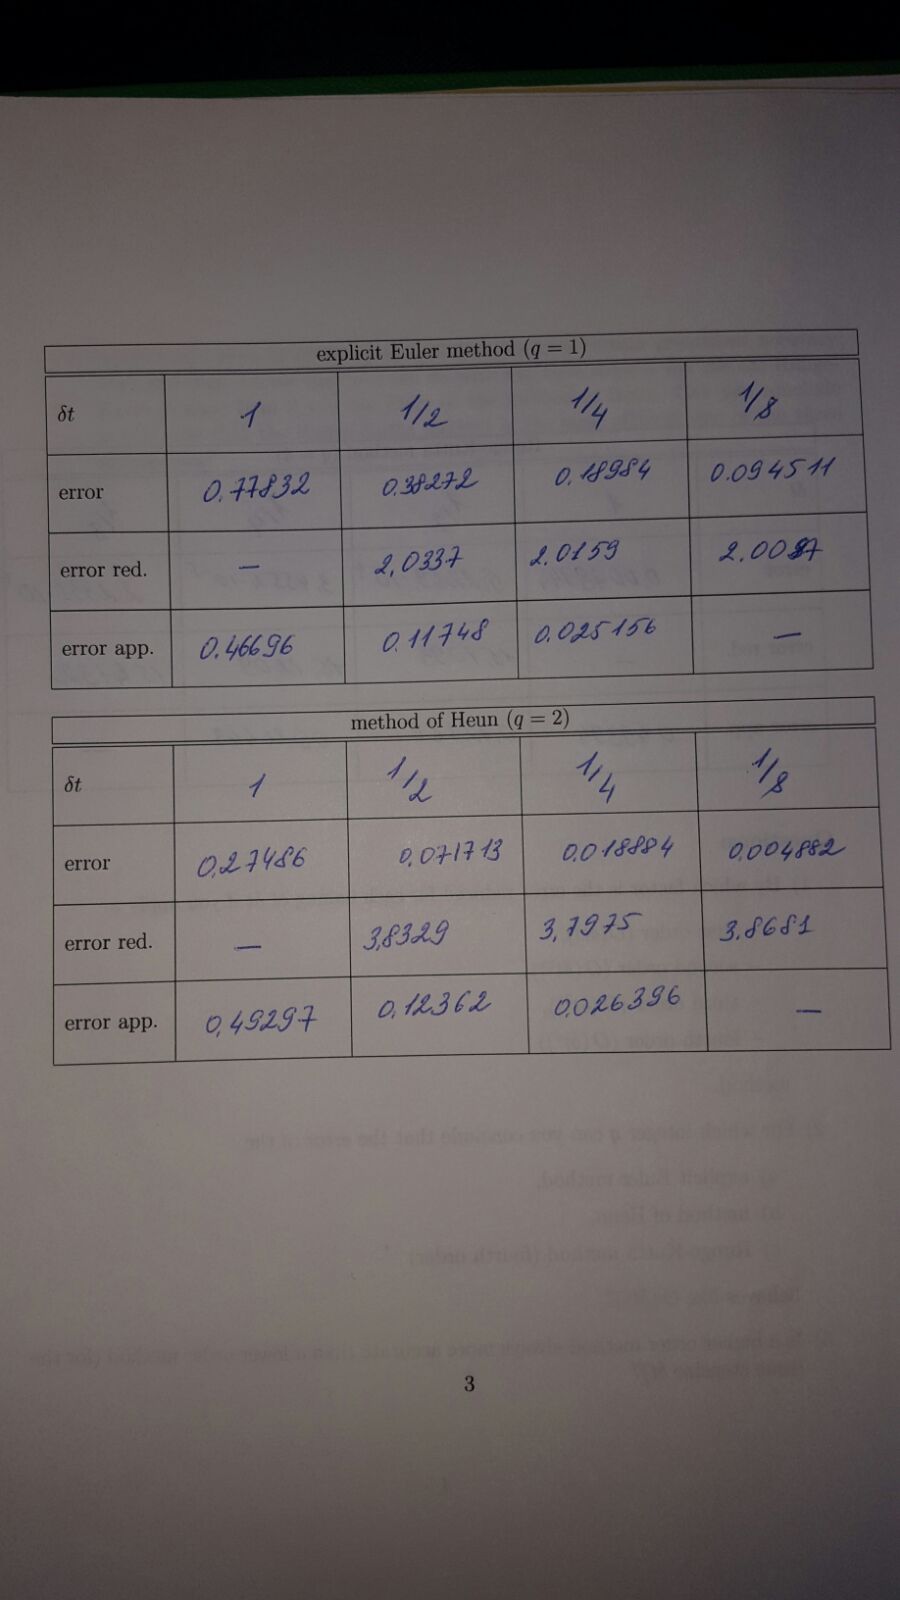 explicit Euler method (q = 1)
δt 1 1/2 1/4 1/8
error 0.77832 0.38272 0.18984 0.094511
error red. — 2,0337 2.0159 2.0087
error app. 0.46696 0.11748 0.025156 —
method of Heun (q = 2)
δt 1 1/2 1/4 1/8
error 0,27486 0,071713 0,018884 0,004882
error red. — 3,8329 3,7975 3.8681
error app. 0,49297 0,12362 0.026396 —
3